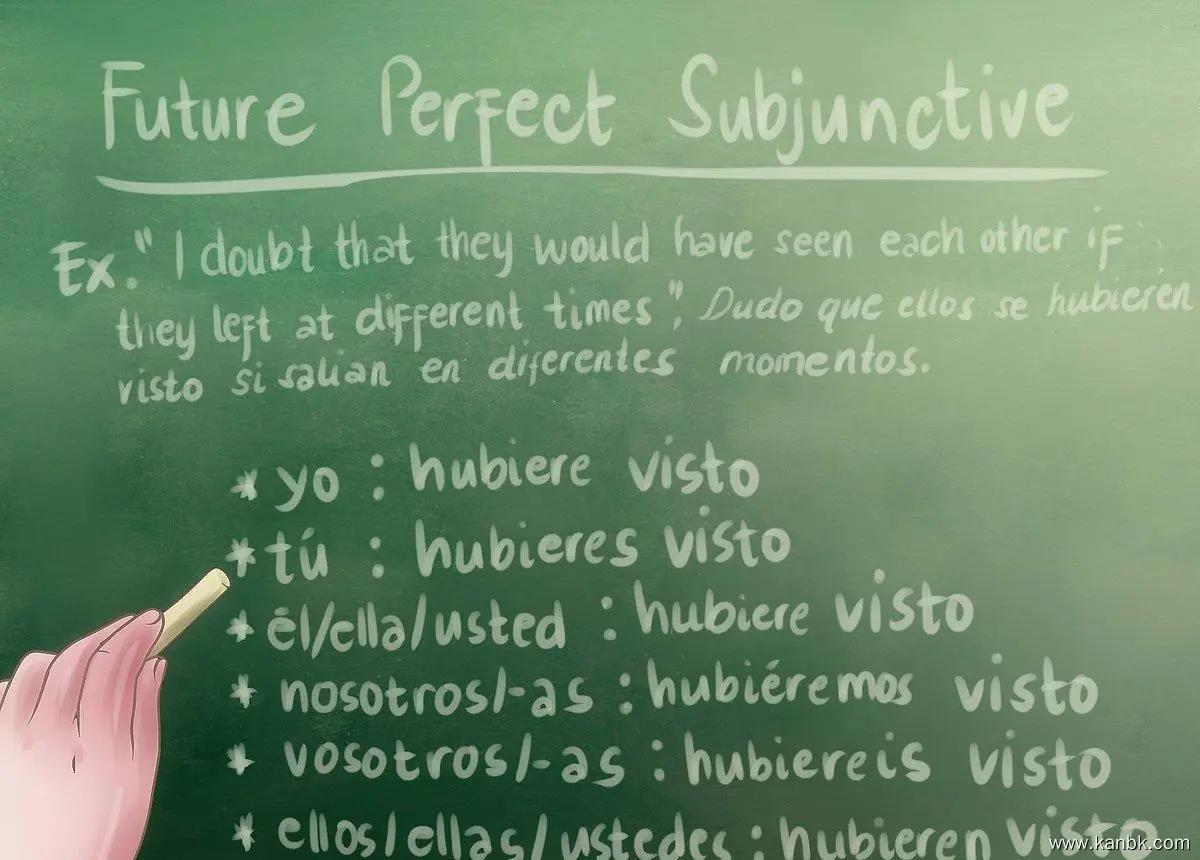 Future Perfect Subjunctive
Ex. "I doubt that they would have seen each other if
they left at different times", Dudo que ellos se hubieren
visto si salian en diferentes momentos.
* yo : hubiere visto
* tú : hubieres visto
* él/ella/usted : hubiere visto
* nosotros/-as : hubiéremos visto
* vosotros/-as : hubiereis visto
* ellos/ellas/ustedes : hubieren visto
www.kanbk.com